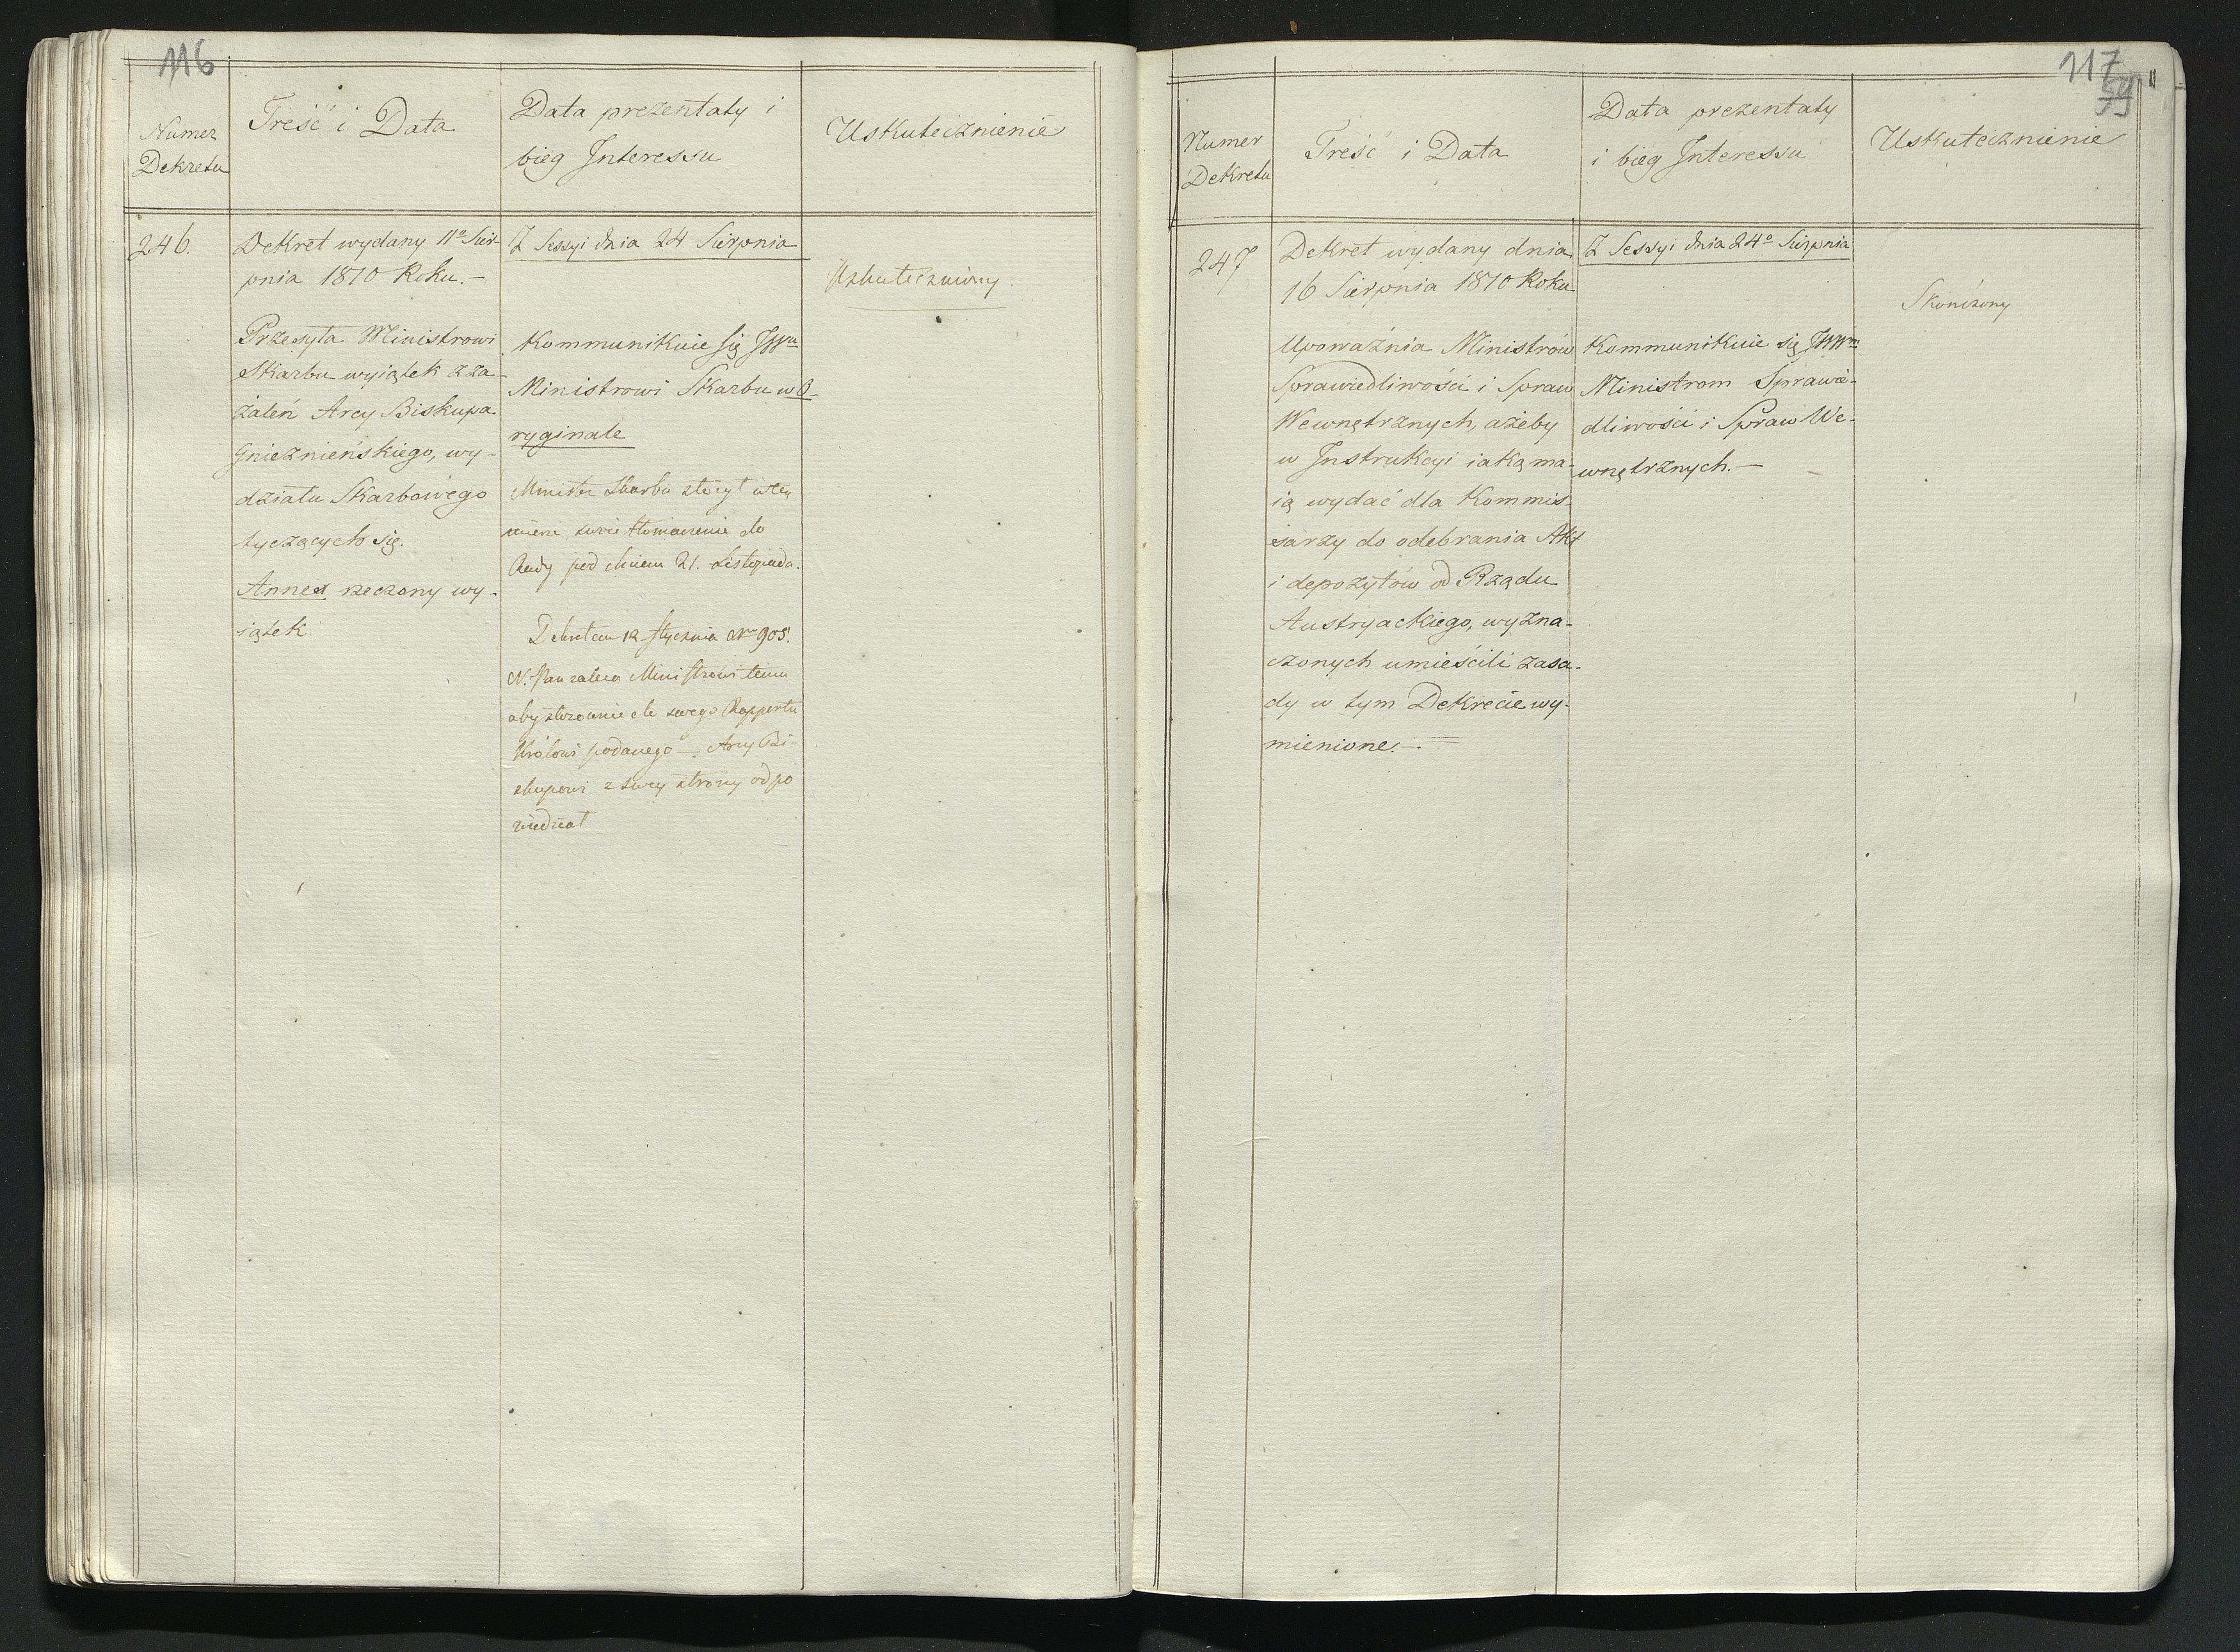 116
Numer
Dekretu
Treść i Data
Data prezentaty i
bieg Interessu
Uskutecznienie
246.
Dekret wydany 11º Sier-
pnia 1810 Roku.-
Przesyła Ministrowi
Skarbu wyiątek z za-
żaleń Arcy Biskupa
Gnieznieńskiego, wy-
działu Skarbowego
tyczących się.
Annex rzeczony wy-
iątek
Z Sessyi dnia 24 Sierpnia
Kommunikuie się JWmu
Ministrowi Skarbu w O-
ryginale
Minister Skarbu złożył w tey
mierze swoie tłomaczenie do
Rady pod dniem 21. Listopada.
Dekretem 12 Stycznia Nro 905.
N. Pan zaleca Ministrowi temu
aby stosownie do swego Rapportu
Królowi podanego - Arcy Bi-
skupowi z swey strony odpo
wiedział
Uskuteczniony
117
59
Numer
Dekretu
Treść i Data
Data prezentaty
i bieg Interessu
Uskutecznienie
247
Dekret wydany dnia
16 Sierpnia 1810 Roku
Upoważnia Ministrów
Sprawiedliwości i Spraw
Wewnętrznych, ażeby
w Instrukcyi iaką ma-
ią wydać dla Kommis-
sarzy do odebrania Akt
i depozytów od Rządu
Austryackiego, wyzna-
czonych umieścili zasa-
dy w tym Dekrecie wy-
mienione.-
Z Sessyi dnia 24º Sierpnia
Kommunikuie się JWWm
Ministrom Sprawie-
dliwości i Spraw We-
wnętrznych.-
Skończony